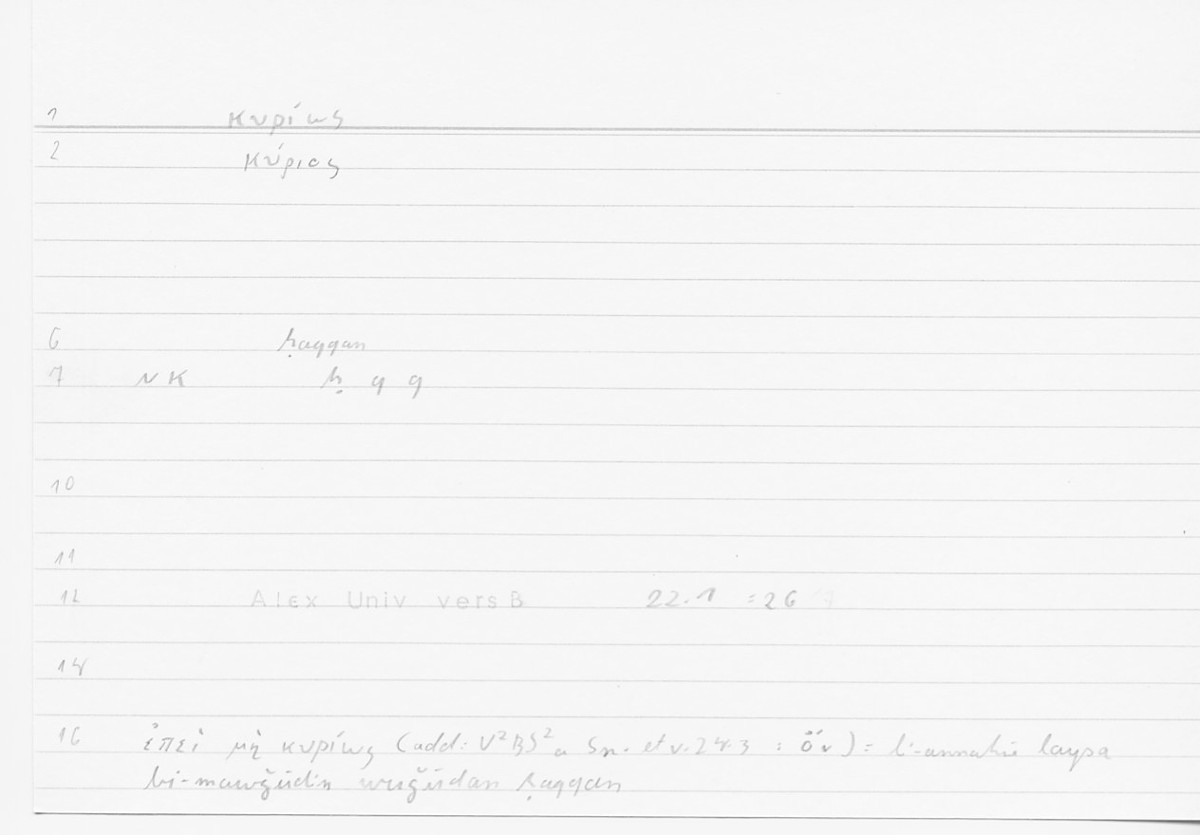 1 κυρίως
2 κύριος
6 ḥaqqan
7 NK ḥ q q
10
11
12 Alex Univ vers B 22.1 = 26
14
16 ἐπεὶ μὴ κυρίως (add: V²BS²a Sn. et v. 24.3 : ὄν) = li-annahū laysa
bi-mawǧūdin wuǧūdan ḥaqqan